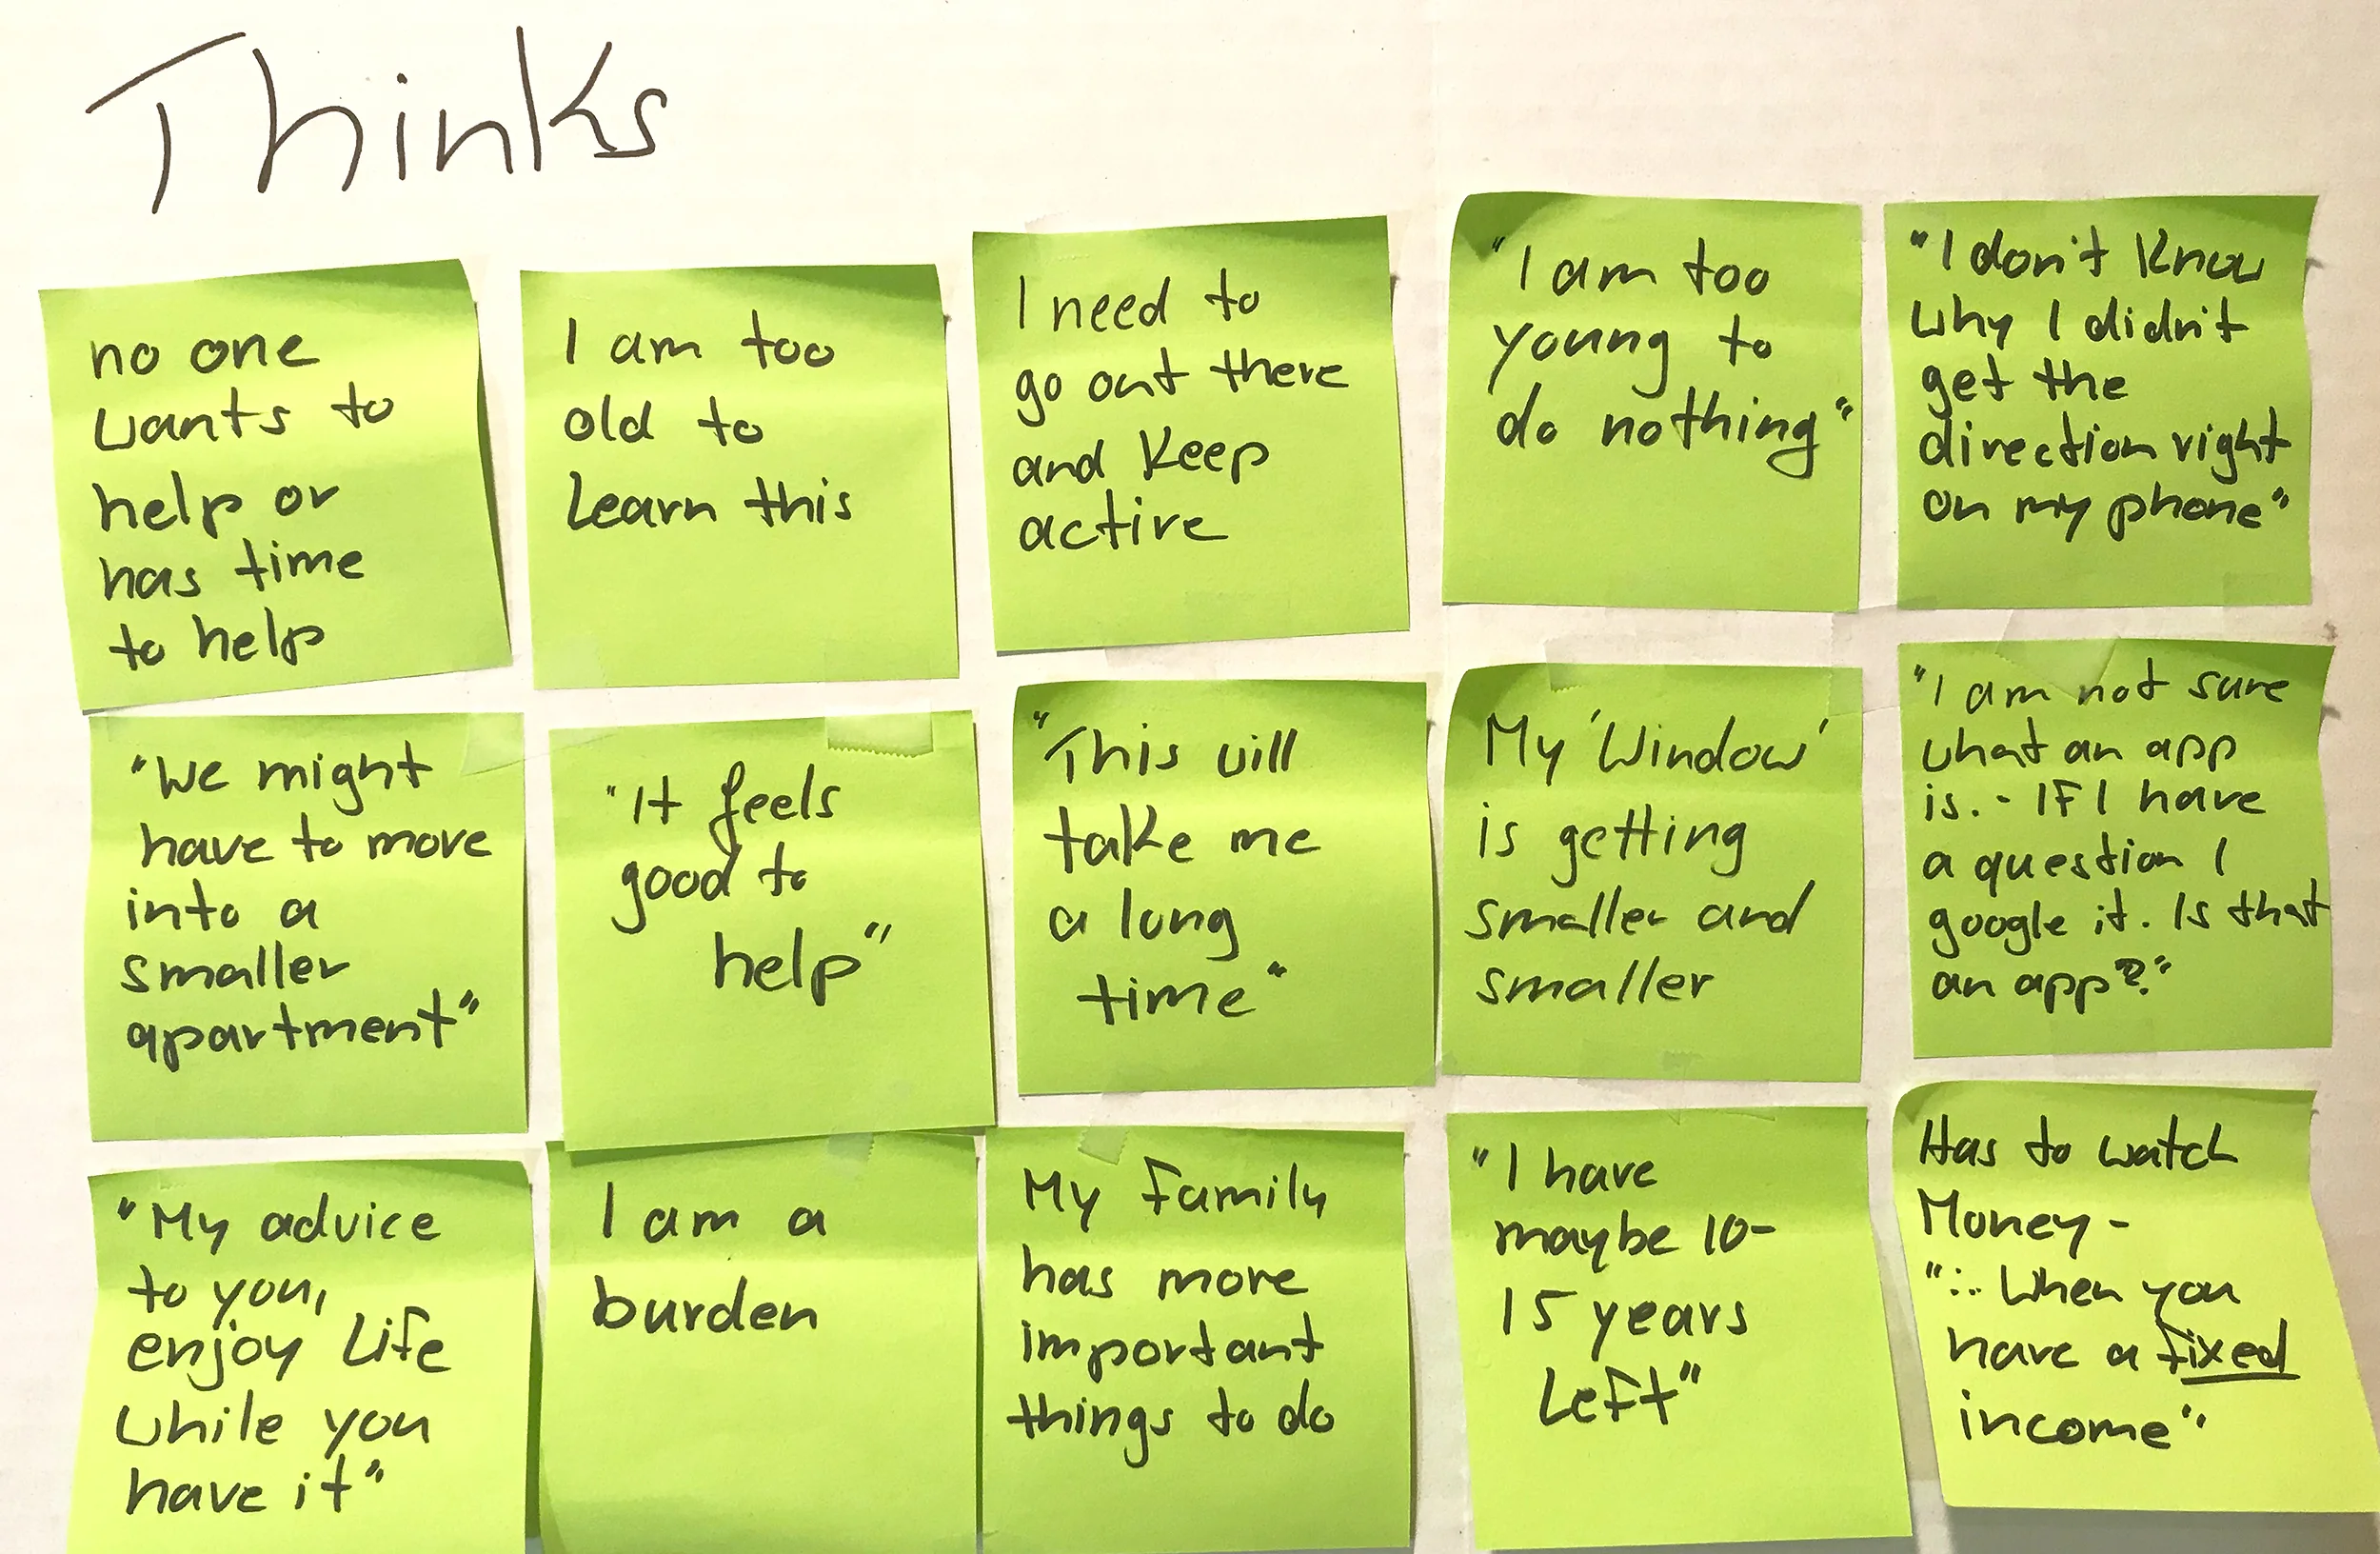 Thinks
no one
wants to
help or
has time
to help
I am too
old to
Learn this
I need to
go out there
and Keep
active
"I am too
young to
do nothing"
"I don't Know
why I didn't
get the
direction right
on my phone"
"We might
have to move
into a
smaller
apartment"
"It feels
good to
help"
"This will
take me
a long
time"
My 'Window'
is getting
smaller and
smaller
"I am not sure
what an app
is. - IF I have
a question I
google it. Is that
an app?"
"My advice
to you,
enjoy Life
while you
have it"
I am a
burden
My Family
has more
important
things to do
"I have
maybe 10-
15 years
Left"
Has to watch
Money -
"... When you
have a fixed
income"